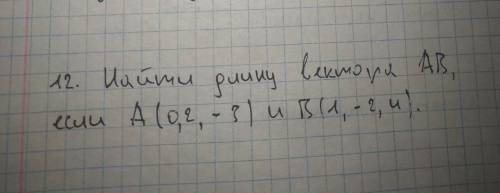 12. Найти длину вектора AB,
если A(0,2,-3) и B(1,-2,4).